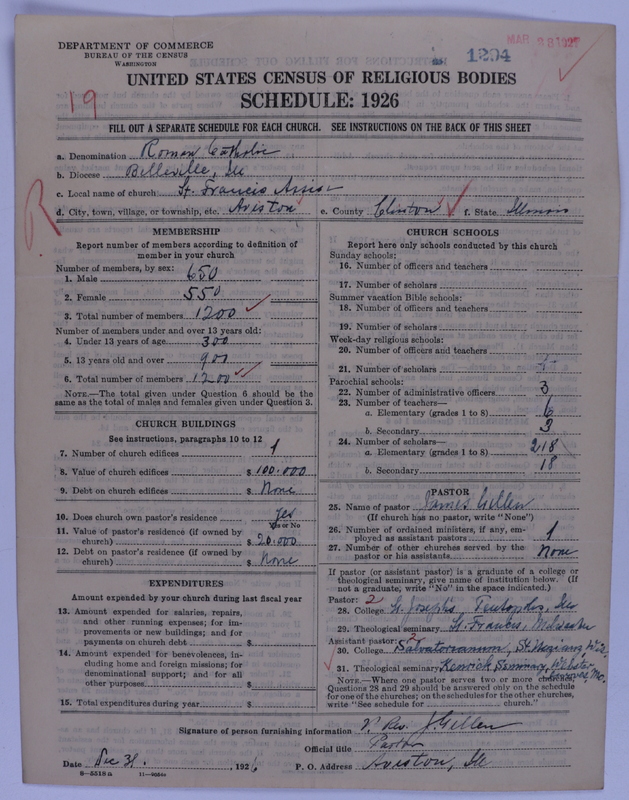 DEPARTMENT OF COMMERCE
BUREAU OF THE CENSUS
WASHINGTON
MAR 28 1927
1294
UNITED STATES CENSUS OF RELIGIOUS BODIES
SCHEDULE: 1926
19
FILL OUT A SEPARATE SCHEDULE FOR EACH CHURCH. SEE INSTRUCTIONS ON THE BACK OF THIS SHEET
a. Denomination Roman Catholic
b. Diocese Belleville, Ill
c. Local name of church St. Francis Assisi
d. City, town, village, or township, etc. Aviston e. County Clinton f. State Illinois
R
MEMBERSHIP
Report number of members according to definition of member in your church
Number of members, by sex:
1. Male 650
2. Female 550
3. Total number of members 1200
Number of members under and over 13 years old:
4. Under 13 years of age 300
5. 13 years old and over 900
6. Total number of members 1200
NOTE.—The total given under Question 6 should be the same as the total of males and females given under Question 3.
CHURCH BUILDINGS
See instructions, paragraphs 10 to 12
7. Number of church edifices 1
8. Value of church edifices $ 100.000
9. Debt on church edifices $ None
10. Does church own pastor's residence Yes
Yes or No
11. Value of pastor's residence (if owned by church) $ 20.000
12. Debt on pastor's residence (if owned by church) $ None
EXPENDITURES
Amount expended by your church during last fiscal year
13. Amount expended for salaries, repairs, and other running expenses; for improvements or new buildings; and for payments on church debt $
14. Amount expended for benevolences, including home and foreign missions; for denominational support; and for all other purposes $
15. Total expenditures during year $
CHURCH SCHOOLS
Report here only schools conducted by this church
Sunday schools:
16. Number of officers and teachers
17. Number of scholars
Summer vacation Bible schools:
18. Number of officers and teachers
19. Number of scholars
Week-day religious schools:
20. Number of officers and teachers
21. Number of scholars
Parochial schools:
22. Number of administrative officers 3
23. Number of teachers—
a. Elementary (grades 1 to 8) 6
b. Secondary 3
24. Number of scholars—
a. Elementary (grades 1 to 8) 218
b. Secondary 18
PASTOR
25. Name of pastor James Gillen
(If church has no pastor, write "None")
26. Number of ordained ministers, if any, employed as assistant pastors 1
27. Number of other churches served by the pastor or his assistants None
If pastor (or assistant pastor) is a graduate of a college or theological seminary, give name of institution below. (If not a graduate, write "No" in the space indicated.)
Pastor: 2
28. College St. Josephs, Teutopolis, Ills
29. Theological seminary St. Francis, Milwaukee
Assistant pastor:
30. College Salvatorianum, St. Nazians Wis.
31. Theological seminary Kenrick Seminary, Webster Groves, Mo.
NOTE.—Where one pastor serves two or more churches, Questions 28 and 29 should be answered only on the schedule for one of the churches; on the schedules for the other churches, write "See schedule for church."
Signature of person furnishing information Rev. J Gillen
Official title Pastor
Date Dec 31. 1926 P. O. Address Aviston, Ill
8-5518a 11-9664a